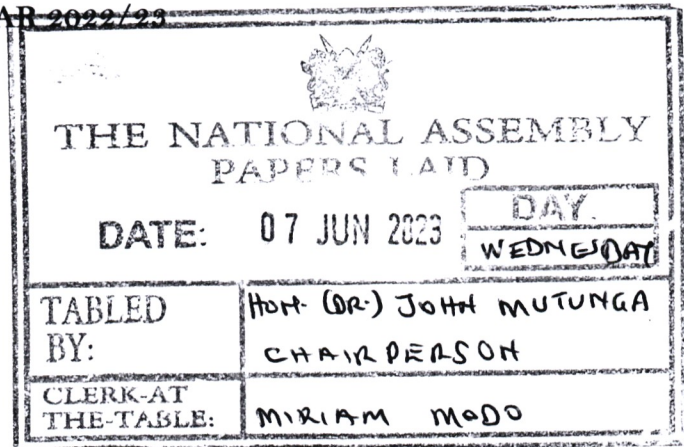 AR 2022/23
THE NATIONAL ASSEMBLY
PAPERS LAID
DATE: 07 JUN 2023
DAY.
WEDNESDAY
TABLED BY:
HON. (DR.) JOHN MUTUNGA
CHAIRPERSON
CLERK-AT
THE-TABLE:
MIRIAM MODO